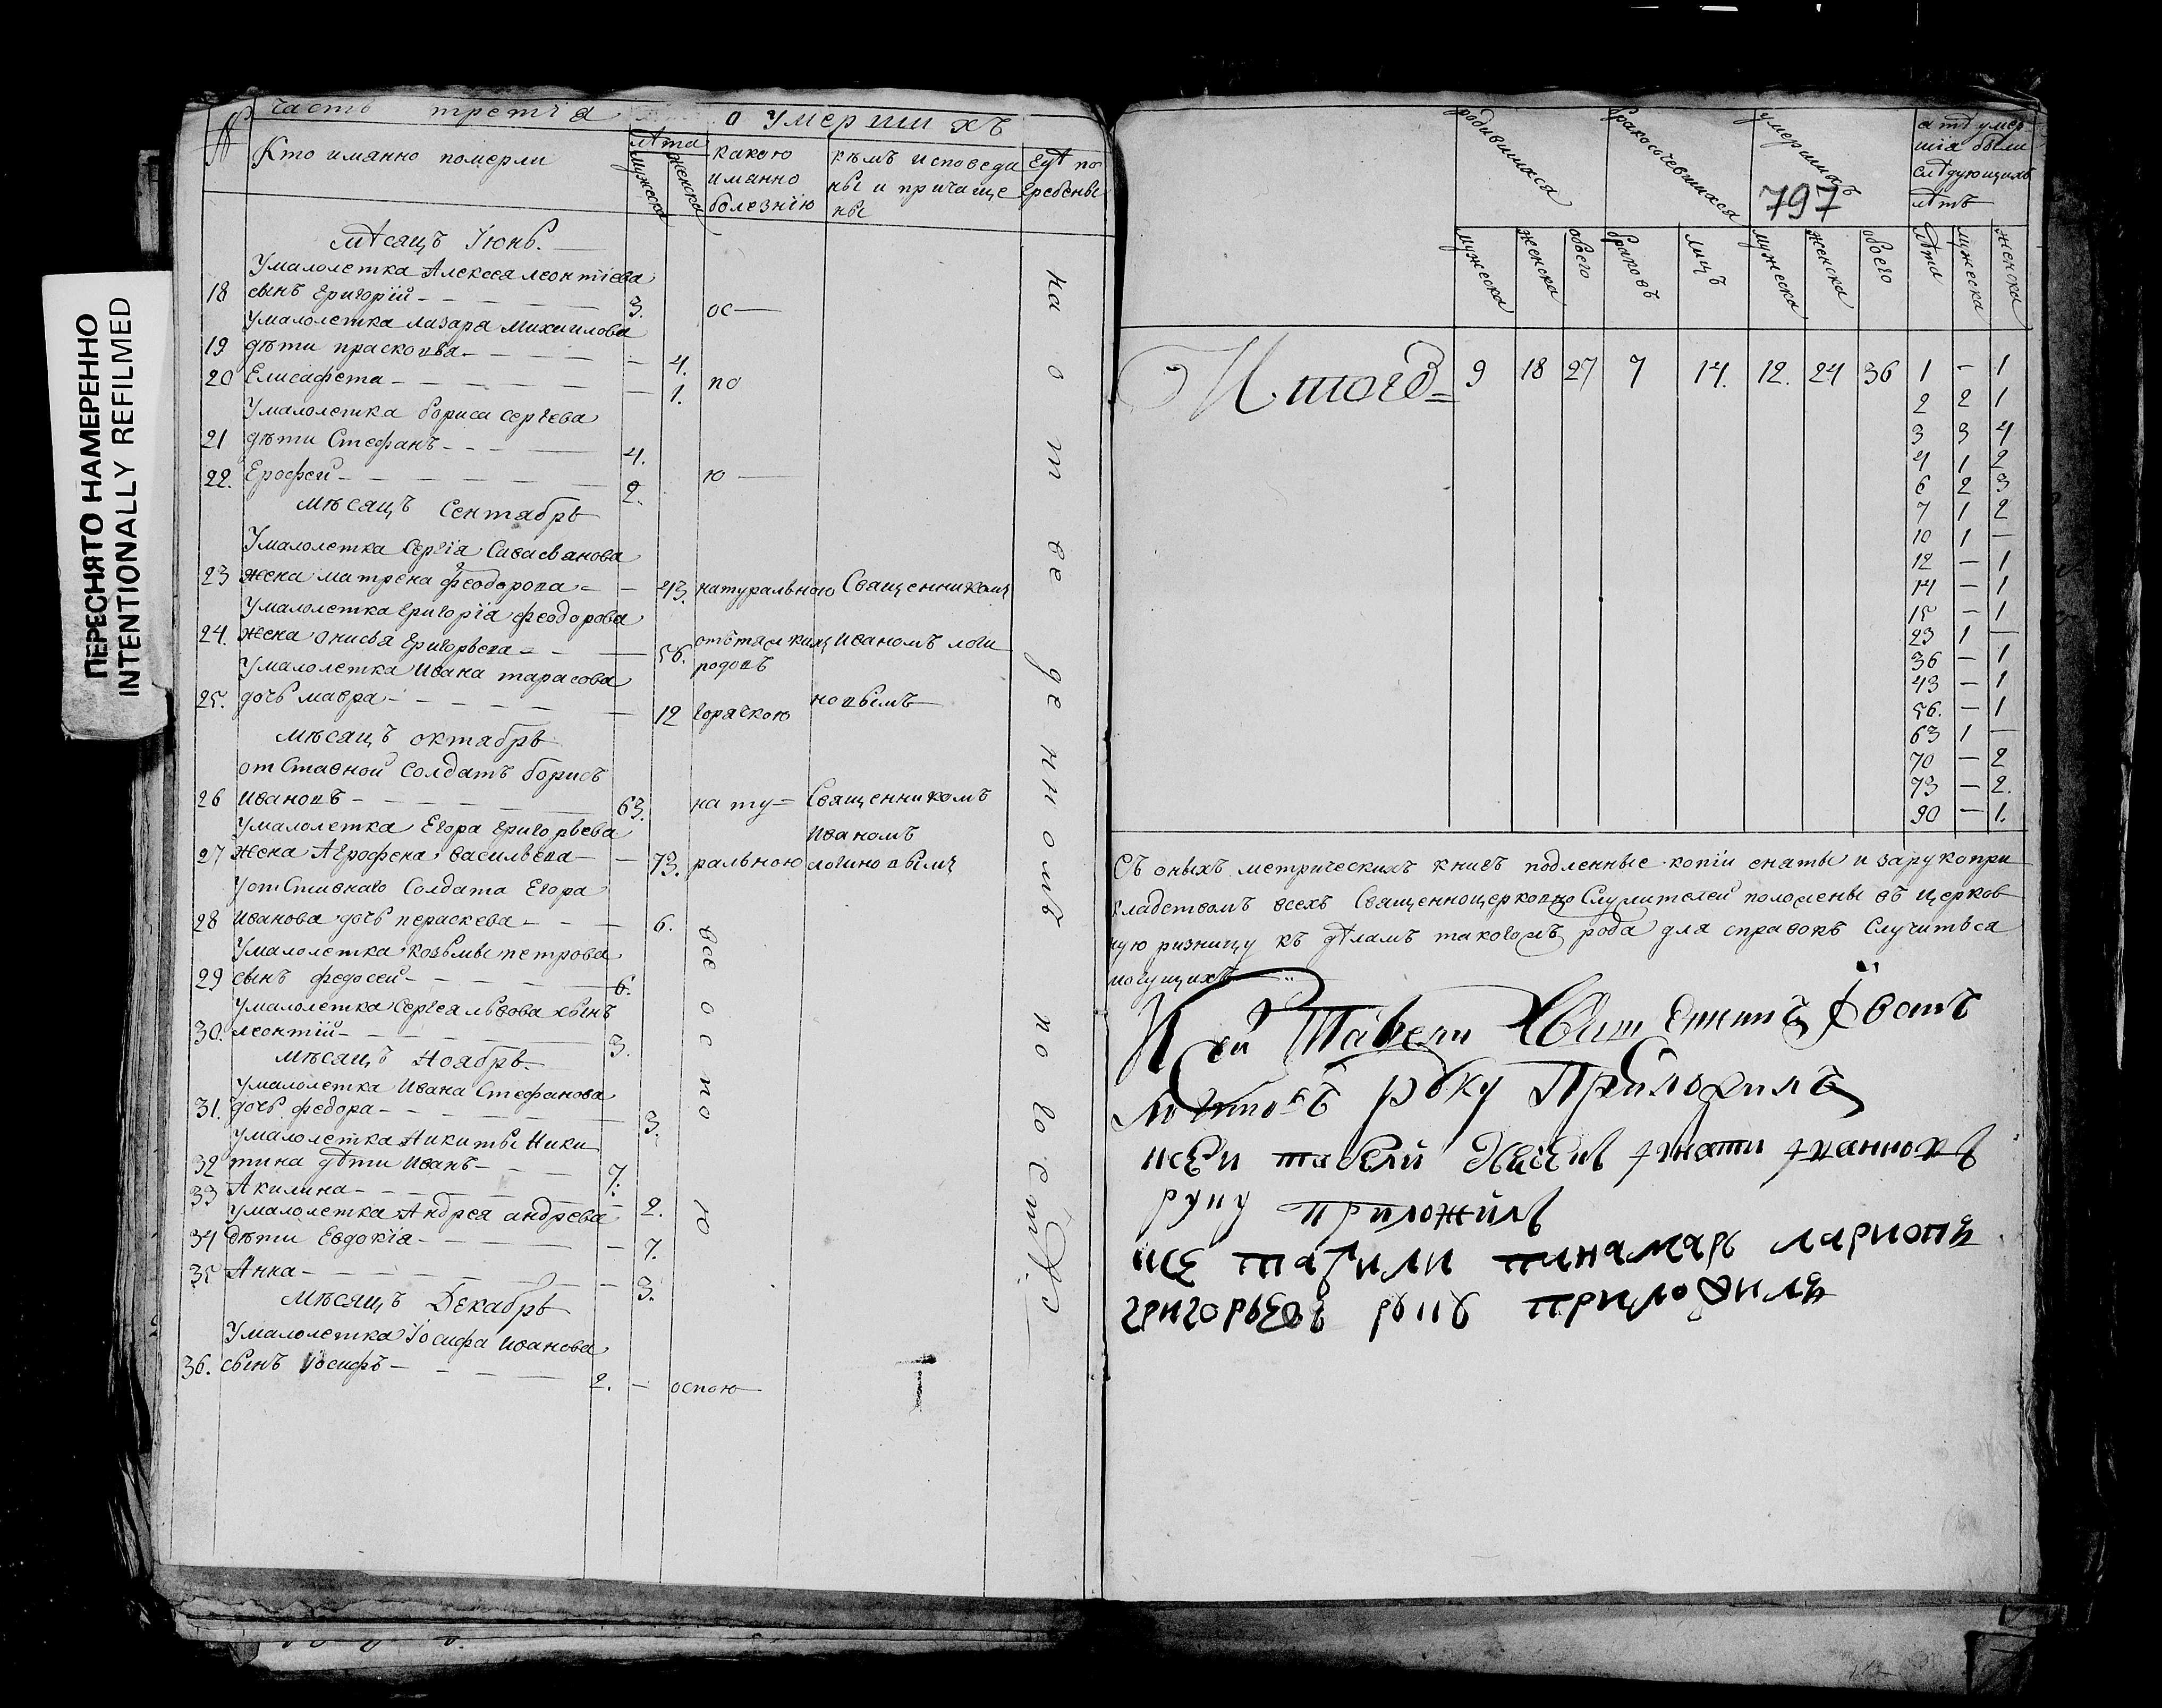 ПЕРЕСНЯТО НАМЕРЕННО
INTENTIONALLY REFILMED
часть третіа о умершихъ
№
Кто имянно померли
лѣта
мужеска
женска
какою
имянно
болезнію
кѣмъ исповеда
ны и причаще
ны
гдѣ по
гребены
мѣсяцъ Іюнь.
Умалолетка Алексея леонтіева
18 сынъ григорій 3. ос
Умалолетка лазаря михаилова
19 дѣти прасковья 4.
20 Елисафета 1. по
Умалолетка бориса сергѣева
21 дѣти Стефанъ 4.
22. Ерофей 2. ю
мѣсяцъ Сентябрь
Умалолетка Сергія
23 жена матрена феодорова 43. натуральною Священникомъ
Умалолетка григорія феодорова
24. жена онисья григорьева 56. отътяжкихъ Иваномъ логи
родовъ
Умалолетка Ивана тарасова
25. дочь мавра 12 горячкою новымъ
мѣсяцъ октябрь
отставной Солдатъ борисъ
26 ивановъ 63. нату= Священникомъ
Умалолетка Егора григорьева Иваномъ
27 жена Агрофена васильева 73. ральною логиновымъ
Уотставнаго Солдата Егора
28 иванова дочь параскева 6.
Умалолетка козьмы петрова
29 сынъ федосей 6.
Умалолетка сергея львова сынъ
30. леонтій 3.
мѣсяцъ Ноябрь
Умалолетка Ивана Стефанова
31. дочь федора 3.
Умалолетка Никиты Ники
32 тина дѣти Иванъ 7.
33 Акилина 2.
Умалолетка Андрея андрева
34 дѣти Евдокіа 7.
35 Анна 3.
мѣсяцъ Декабрь
Умалолетка Іосифа иванова
36. сынъ Іосифъ 2. оспою
все оспою
на отведенномъ погостѣ
родившихся
бракосочевшихся
умершихъ
797
а тѣ умер
шіа были
слѣдующихъ
лѣтъ
мужеска женска обоего браковъ лицъ мужеска женска обоего лѣта мужеска женска
Итого= 9 18 27 7 14. 12. 24 36 1 – 1
2 2 1
3 3 4
4 1 2
6 2 3
7 1 2
10 1 –
12 – 1
14 – 1
15 – 1
23 1 –
36 – 1
43 – 1
56. – 1
63 1 –
70 – 2
73 – 2.
90 – 1.
Съ оныхъ метрическихъ книгъ подленные копіи сняты и зарукопри
кладствомъ всехъ Священноцерковно Служителей положены въ церков
ную ризницу къ дѣламъ таковомъ рода для справокъ Случиться
могущихъ
Ксей Табели Священникъ Іванъ
руку Приложилъ
ксей табели
руку приложилъ
ксе табили пинамарь ларионъ
григорьевъ руку приложилъ